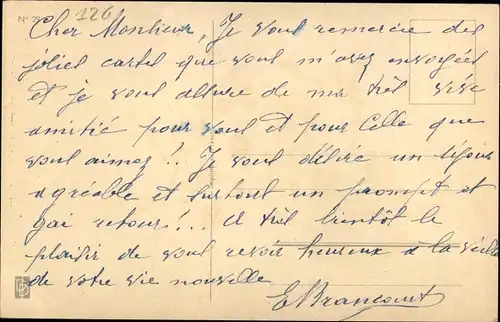 126
Cher Monsieur, Je vous remercie des
jolies cartes que vous m'avez envoyées
et je vous assure de ma très vive
amitié pour vous et pour Celle que
vous aimez!! Je vous désire un séjour
agréable et surtout un prompt et
gai retour!... A très bientôt le
plaisir de vous revoir heureux à la veille
de votre vie nouvelle
E Brancourt